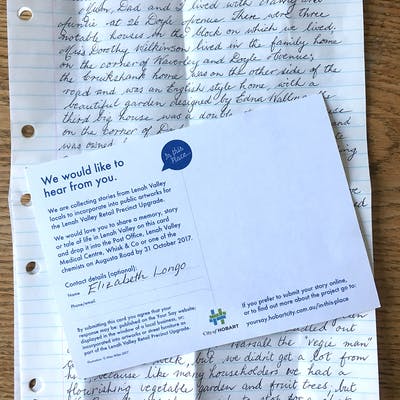 Mum, Dad and I lived with Granny and
Auntie at 26 Doyle Avenue. There were three
notable houses in the block on which we lived.
Miss Dorothy Wilkinson lived in the family home
on the corner of Waverley and Doyle Avenues,
the Cruikshank home was on the other side of the
road and was an English style home, with a
beautiful garden designed by Edna Walling. The
third big house was a double
on the corner of
was owned
In this
Place...
We would like to
hear from you.
We are collecting stories from Lenah Valley
locals to incorporate into public artworks for
the Lenah Valley Retail Precinct Upgrade.
We would love you to share a memory, story
or tale of life in Lenah Valley on this card
and drop it into the Post Office, Lenah Valley
Medical Centre, Whisk & Co or one of the
chemists on Augusta Road by 31 October 2017.
Contact details (optional):
Name Elizabeth Longo
Phone/email
By submitting this card you agree that your
response may be: published on the Your Say website;
displayed in the window of a local business; or;
incorporated into artworks or street furniture as
part of the Lenah Valley Retail Precinct Upgrade.
City of HOBART
If you prefer to submit your story online,
or to find out more about the project go to:
yoursay.hobartcity.com.au/inthisplace
out
the "vegie man"
week, but we didn't get a lot from
him, because like many householders we had a
flourishing vegetable garden and fruit trees, but